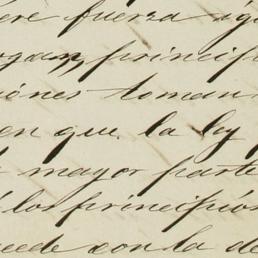 ere fuerza igu
ogan, principi
iónes toman
en que la ley
mayor parte
los principiós
uede con la de